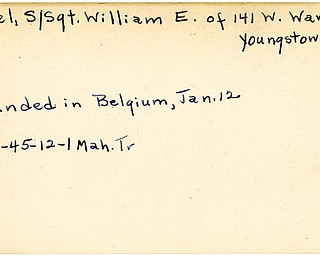 el, S/Sgt. William E. of 141 W. War
Youngstow
unded in Belgium, Jan. 12
-45-12-1 Mah. Tr